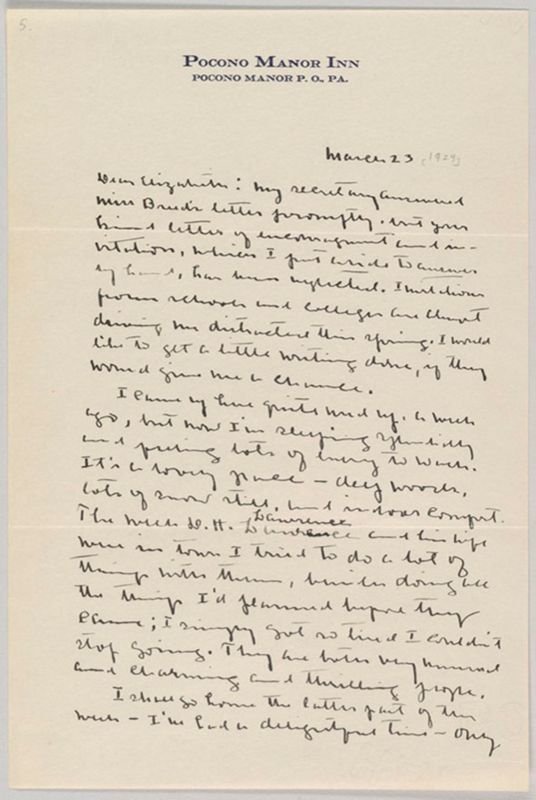 5.
POCONO MANOR INN
POCONO MANOR P. O., PA.
March 23 [1924]
Dear Elizabeth: My secretary answered
Miss Breed's letter promptly, but your
kind letter of encouragement and in-
vitation, which I put aside to answer
by hand, has been neglected. Invitations
from schools and colleges are almost
driving me distracted this spring. I would
like to get a little writing done, if they
would give me a chance.
I came up here quite used up, a week
ago, but now I'm sleeping splendidly
and putting lots of energy to work.
It's a lovely place — deep woods,
lots of snow still, and indoor comfort.
The week D. H. Lawrence and his wife
were in town I tried to do a lot of
things with them, besides doing all
the things I'd planned before they
came; I simply got so tired I couldn't
stop going. They are both very unusual
and charming and thrilling people.
I shall go home the latter part of this
week — I've had a delightful time — only